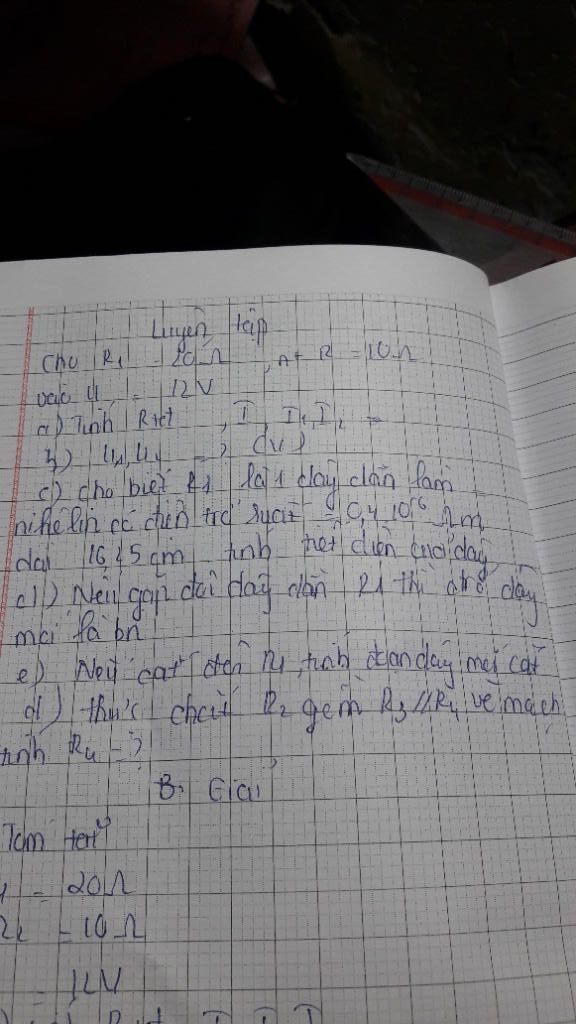 Luyện tập
Cho R₁ = 20Ω, nt R = 10Ω
vào U = 12V
a) Tính Rtđ, I, I₁, I₂ =
b) U₁, U₂ = ? (V)
c) cho biết R1 là 1 dây dẫn làm
nikêlin có điện trở suất = 0,4 10⁻⁶ Ωm
dài cm tính tiết diện của dây
d) Nếu gập đôi dây dẫn R1 thì dây
mới là bn
e) Nếu cắt R₁, tính dây mới cắt
thực chất R₂ gồm R₃ // R₄ vẽ mạch
tính R₄ = ?
Giải
Tóm tắt
= 20Ω
= 10Ω
= 12V